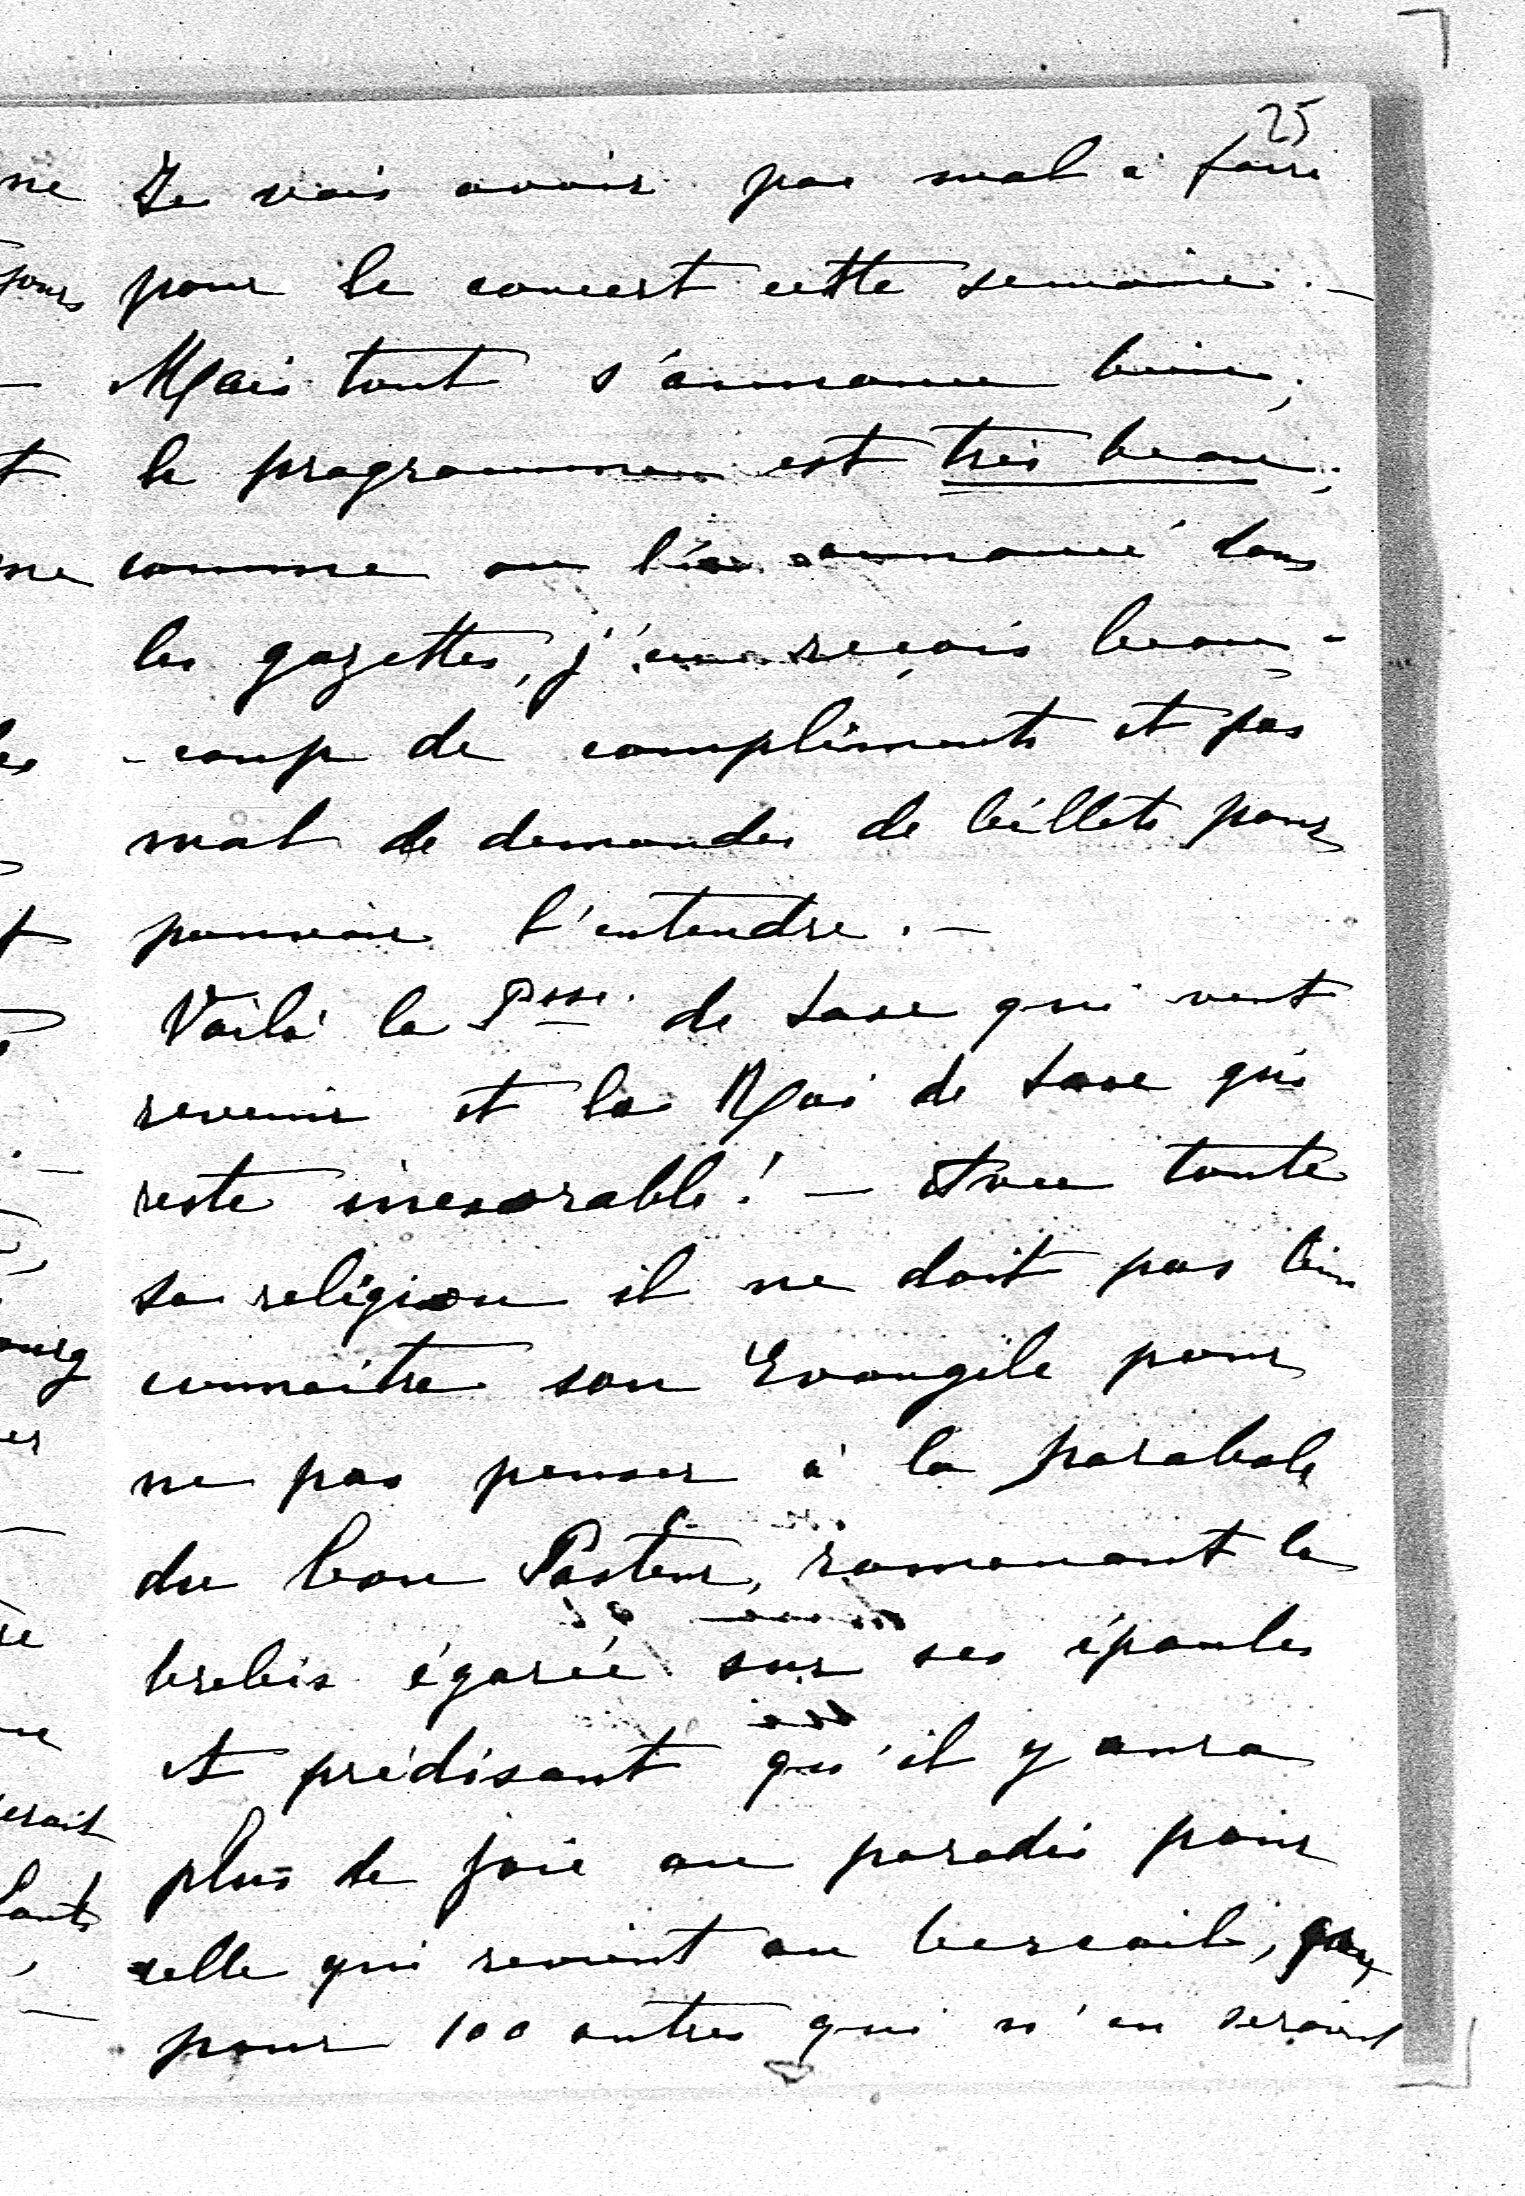 25
Je vais avoir pas mal à faire
pour le concert cette semaine. —
Mais tout s'annonce bien;
le programme est très beau;
comme on l'a annoncé dans
les gazettes, j'en reçois beau-
-coup de compliments et pas
mal de demandes de billets pour
pouvoir l'entendre. —
Voilà la Psse. de Saxe qui veut
revenir et le Roi de Saxe qui
reste inexorable! — Avec toute
sa religion il ne doit pas bien
connaitre son Evangile pour
ne pas penser à la parabole
du bon Pasteur, ramenant la
brebis égarée sur ses épaules
et prédisant qu'il y aura
plus de joie au paradis pour
celle qui revient au bercail, que
pour 100 autres qui n'en seraient